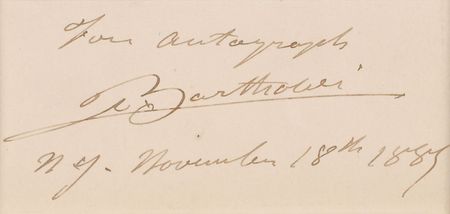 autograph
A Bartholdi
N Y. November 18th 1885